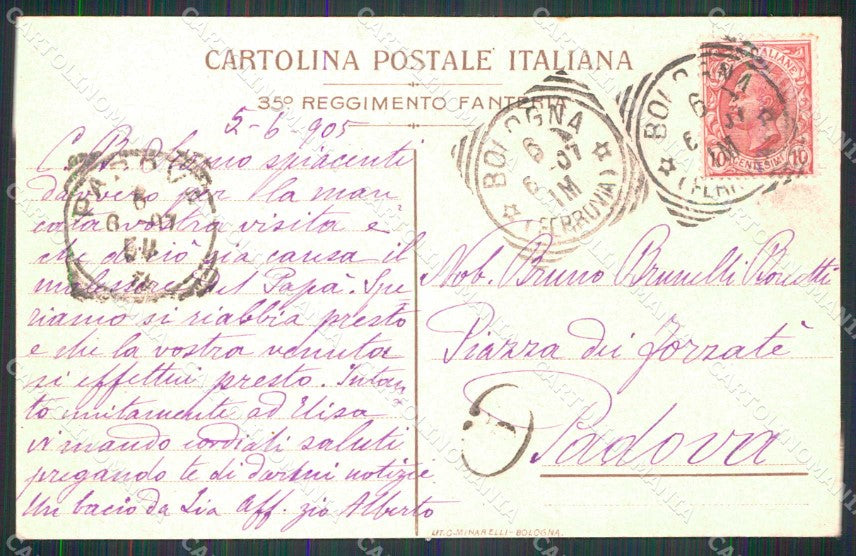 CARTOLINA POSTALE ITALIANA
35º REGGIMENTO FANTERIA
5-6-905
C. Bruno spiacenti
davvero per la man
cata vostra visita e
che di ciò sia causa il
malessere del Papà. Spe
riamo si riabbia presto
e che la vostra venuta
si effettui presto. Intan
to unitamente ad Elisa
vi mando cordiali saluti
pregando te di darmi notizie
Un bacio da Zia Aff. zio Alberto
PADOVA
6-07
BOLOGNA
6 07
6 1M
(FERROVIA)
BOLOGNA
6
6 M
(FERR
ITALIANE
10 CENTESIMI 10
Nob. Bruno Brunelli Bonetti
Piazza dei Forzatè
Padova
LIT. G. MINARELLI - BOLOGNA.
CARTOLINOMANIA